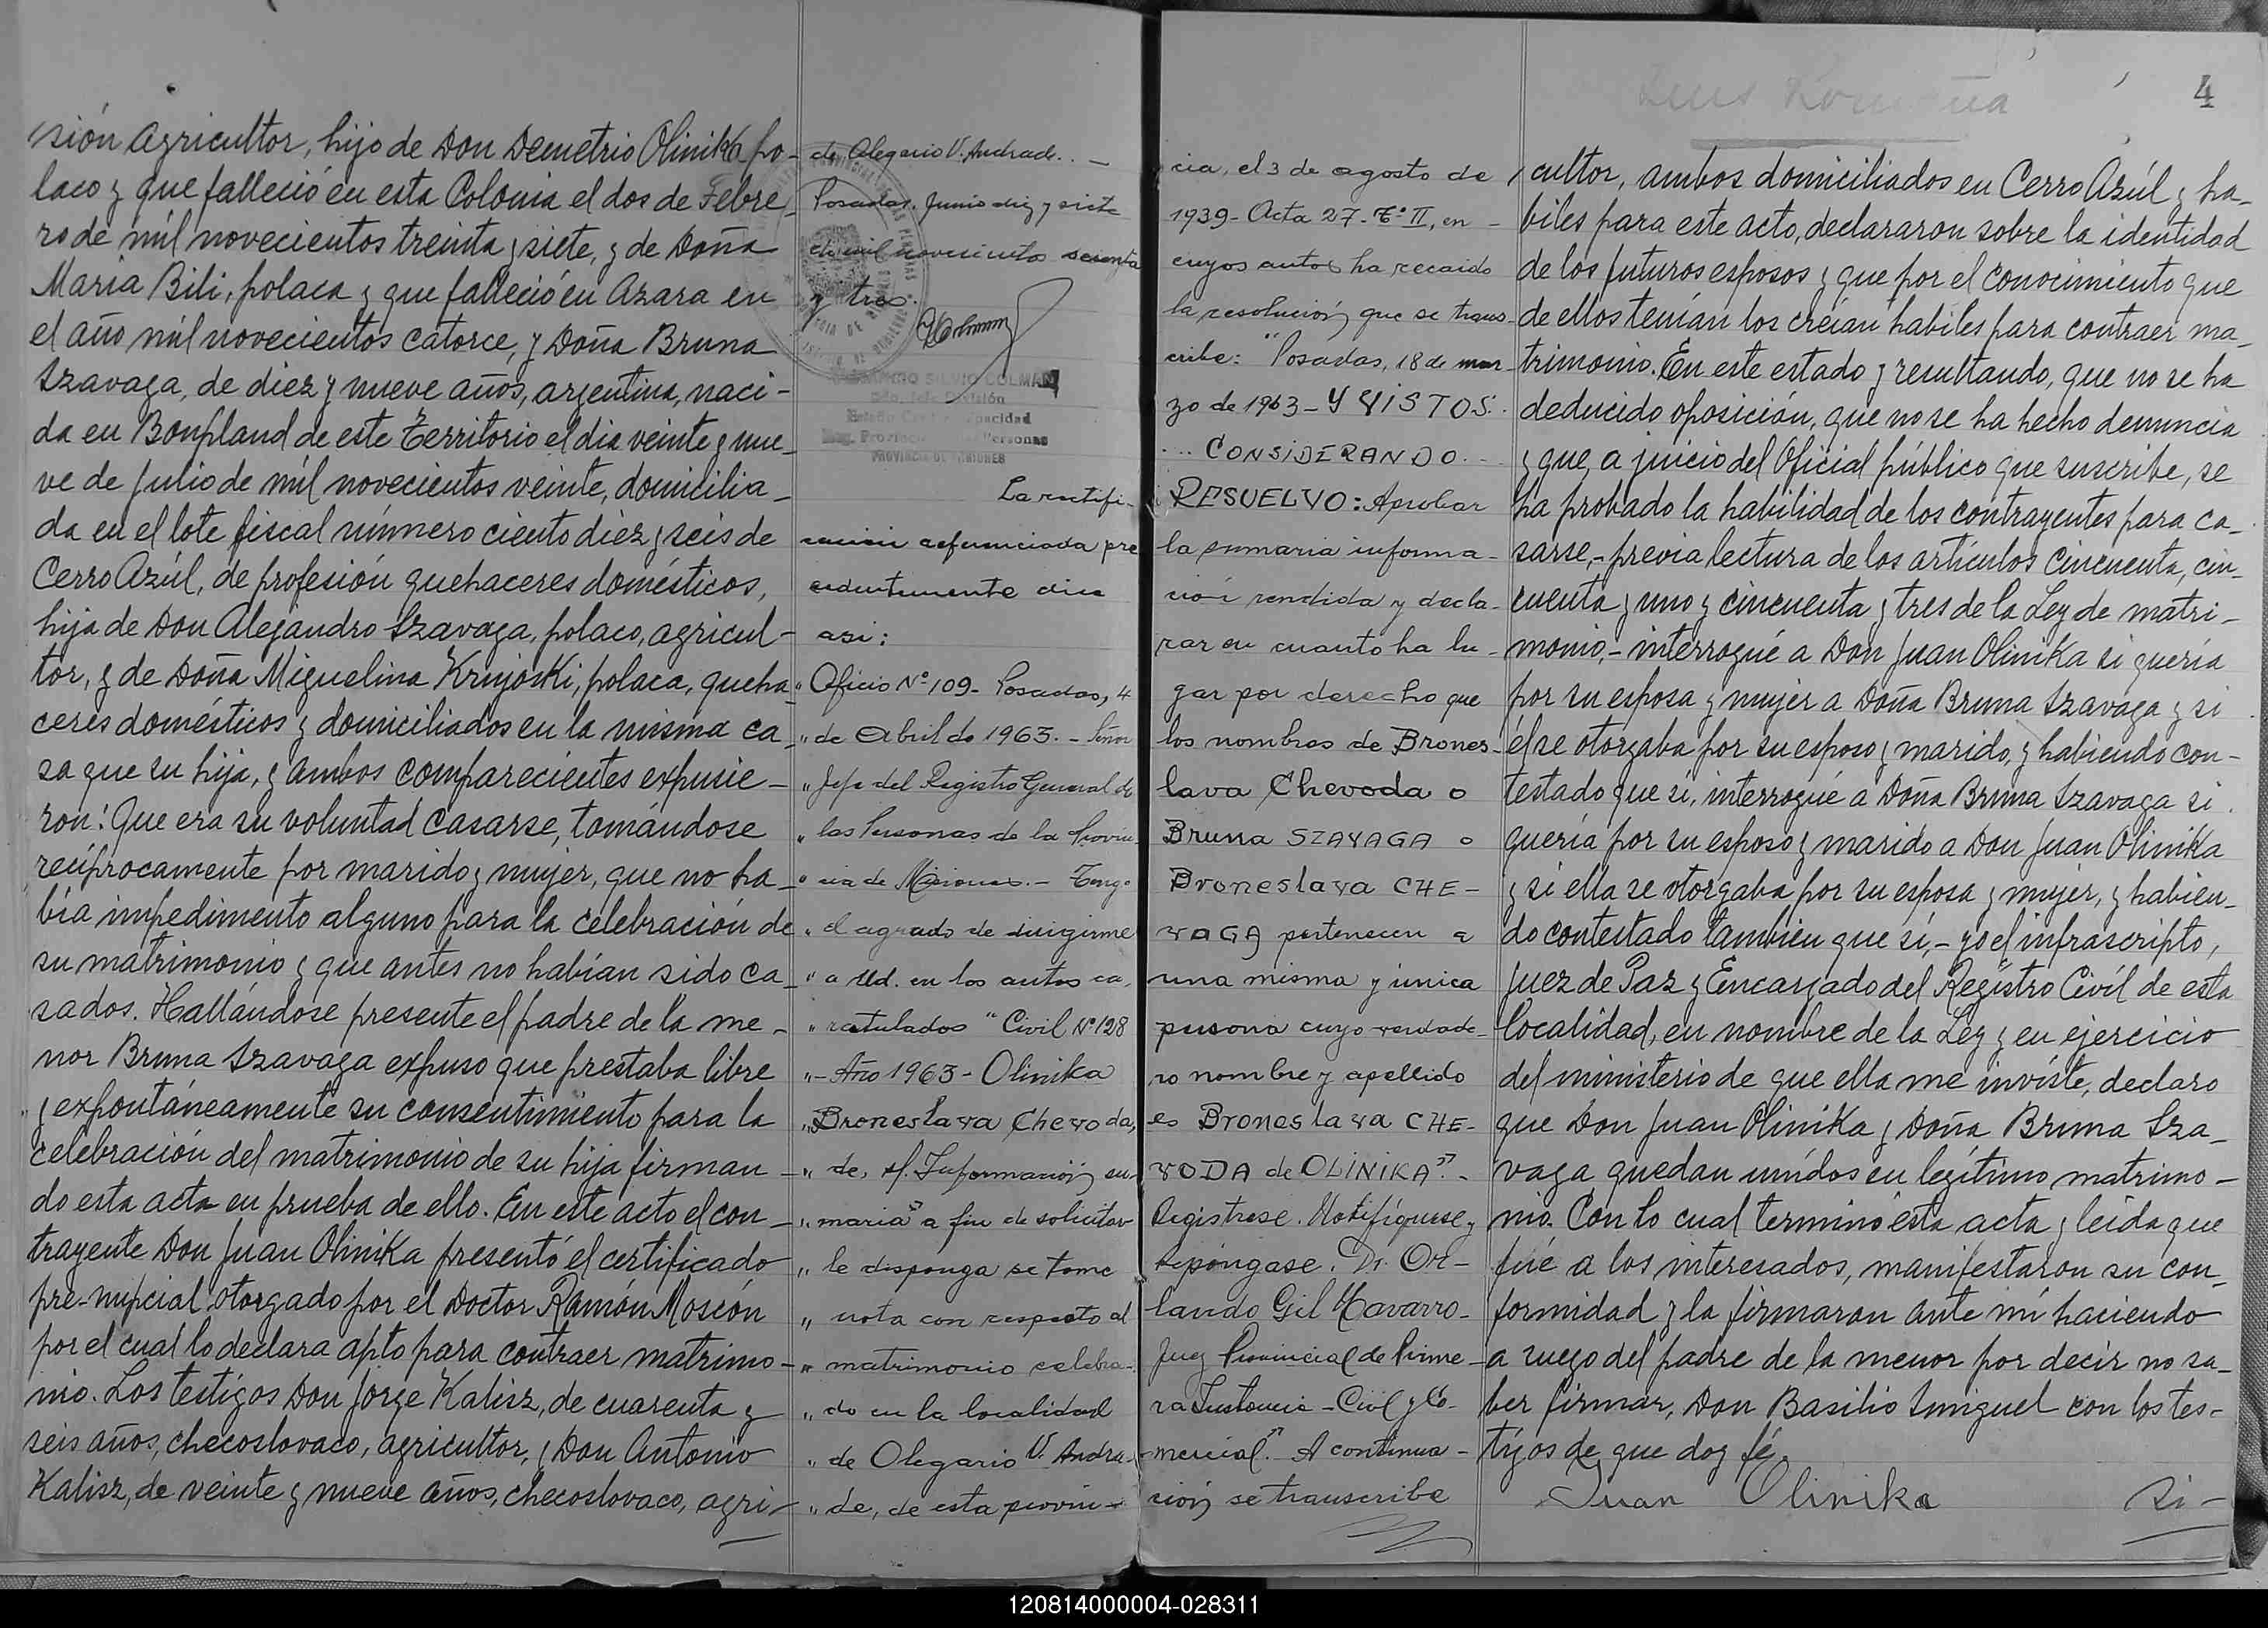 sión Agricultor, hijo de Don Demetrio Olinika, po-
laco y que falleció en esta Colonia el dos de Febre-
ro de mil novecientos treinta y siete, y de Doña
María Bili, polaca y que falleció en Azara en
el año mil novecientos catorce, y Doña Bruna
Szavaga, de diez y nueve años, argentina, naci-
da en Bonpland de este Territorio el día veinte y nue-
ve de Julio de mil novecientos veinte, domicilia-
da en el lote fiscal número ciento diez y seis de
Cerro Azúl, de profesión quehaceres domésticos,
hija de Don Alejandro Szavaga, polaco, agricul-
tor, y de Doña Miguelina Krujoski, polaca, queha-
ceres domésticos y domiciliados en la misma ca-
sa que su hija, y ambos comparecientes expusie-
ron: Que era su voluntad casarse, tomándose
recíprocamente por marido y mujer, que no ha-
bía impedimento alguno para la celebración de
su matrimonio y que antes no habían sido ca-
sados. Hallándose presente el padre de la me-
nor Bruna Szavaga expuso que prestaba libre
y expontáneamente su consentimiento para la
celebración del matrimonio de su hija firman-
do esta acta en prueba de ello. En este acto el con-
trayente Don Juan Olinika presentó el certificado
pre-nupcial otorgado por el Doctor Ramón Moscón
por el cual lo declara apto para contraer matrimo-
nio. Los testigos Don Jorge Kalisz, de cuarenta y
seis años, checoslovaco, agricultor, y Don Antonio
Kalisz, de veinte y nueve años, checoslovaco, agri-
de Olegario V. Andrade. . -
Posadas, Junio diez y siete
de mil novecientos sesenta
y tres.
SILVIO COLMAN
PROVINCIA DE MISIONES
La rectifi-
cación enunciada pre
cedentemente dice
asi:
" Oficio Nº 109- Posadas, 4
" de Abril de 1963. - Señor
" Jefe del Registro General de
" las Personas de la Provin-
" cia de Misiones. - Tengo
" el agrado de dirigirme
" a Ud. en los autos ca-
" ratulados "Civil Nº 128
" - Año 1963 - Olinika
" Broneslava Chevoda,
" de, s/. Información su-
" maria" a fin de solicitar
" le disponga se tome
" nota con respecto al
" matrimonio celebra-
" do en la localidad
" de Olegario V. Andra-
" de, de esta provin-
cia, el 3 de agosto de
1939- Acta 27- Tº II, en -
cuyos autos ha recaido
la resolución que se trans-
cribe: "Posadas, 18 de mar-
zo de 1963 - Y VISTOS: .
... CONSIDERANDO. -
RESUELVO: Aprobar
la sumaria informa-
ción rendida y decla-
rar en cuanto ha lu-
gar por derecho que
los nombres de Brones-
lava Chevoda o
Bruna SZAVAGA o
Broneslava CHE-
VAGA pertenecen a
una misma y única
persona cuyo verdade-
ro nombre y apellido
es Broneslava CHE-
VODA de OLINIKA". -
Registrese. Notifíquese y
repóngase. Dr. Or-
lando Gil Navarro-
Juez Provincial de Prime-
ra Instancia - Civil y Co-
mercial." A continua-
ción se transcribe
4
cultor, ambos domiciliados en Cerro Azúl y ha-
biles para este acto, declararon sobre la identidad
de los futuros esposos y que por el conocimiento que
de ellos tenían los creían habiles para contraer ma-
trimonio. En este estado y resultando, que no se ha
deducido oposición, que no se ha hecho denuncia
y que, a juicio del Oficial público que suscribe, se
ha probado la habilidad de los contrayentes para ca-
sarse,- previa lectura de los artículos cincuenta, cin-
cuenta y uno y cincuenta y tres de la Ley de matri-
monio,- interrogué a Don Juan Olinika si quería
por su esposa y mujer a Doña Bruna Szavaga y si
él se otorgaba por su esposo y marido, y habiendo con-
testado que sí, interrogué a Doña Bruna Szavaga si
quería por su esposo y marido a Don Juan Olinika
y si ella se otorgaba por su esposa y mujer, y habien-
do contestado tambien que sí,- yo el infrascripto,
Juez de Paz y Encargado del Registro Civíl de esta
localidad, en nombre de la Ley y en ejercicio
del ministerio de que ella me inviste, declaro
que Don Juan Olinika y Doña Bruna Sza-
vaga quedan unídos en legítimo matrimo-
nio. Con lo cual terminó esta acta y leida que
fué a los interesados, manifestaron su con-
formidad y la firmaron ante mí haciendo
a ruego del padre de la menor por decir no sa-
ber firmar, Don Basilio Smiguel con los tes-
tigos de que doy fé.
Juan Olinika
Si-
120814000004-028311